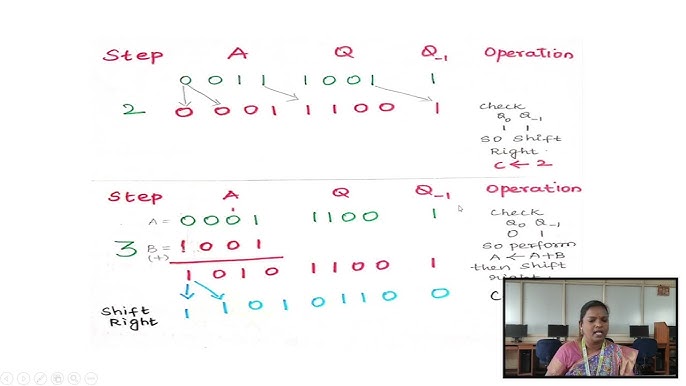 Step A Q Q-1 Operation
0 0 1 1 1 0 0 1 1
2 0 0 0 1 1 1 0 0 1
Check
Q0 Q-1
1 1
So Shift
Right.
C ← 2
Step A Q Q-1 Operation
1
A = 0 0 0 1 1 1 0 0 1
3 B = 1 0 0 1
(+)
1 0 1 0 1 1 0 0 1
Shift Right 1 1 0 1 0 1 1 0 0
Check
Q0 Q-1
0 1
So perform
A ← A+B
then Shift
right.
C